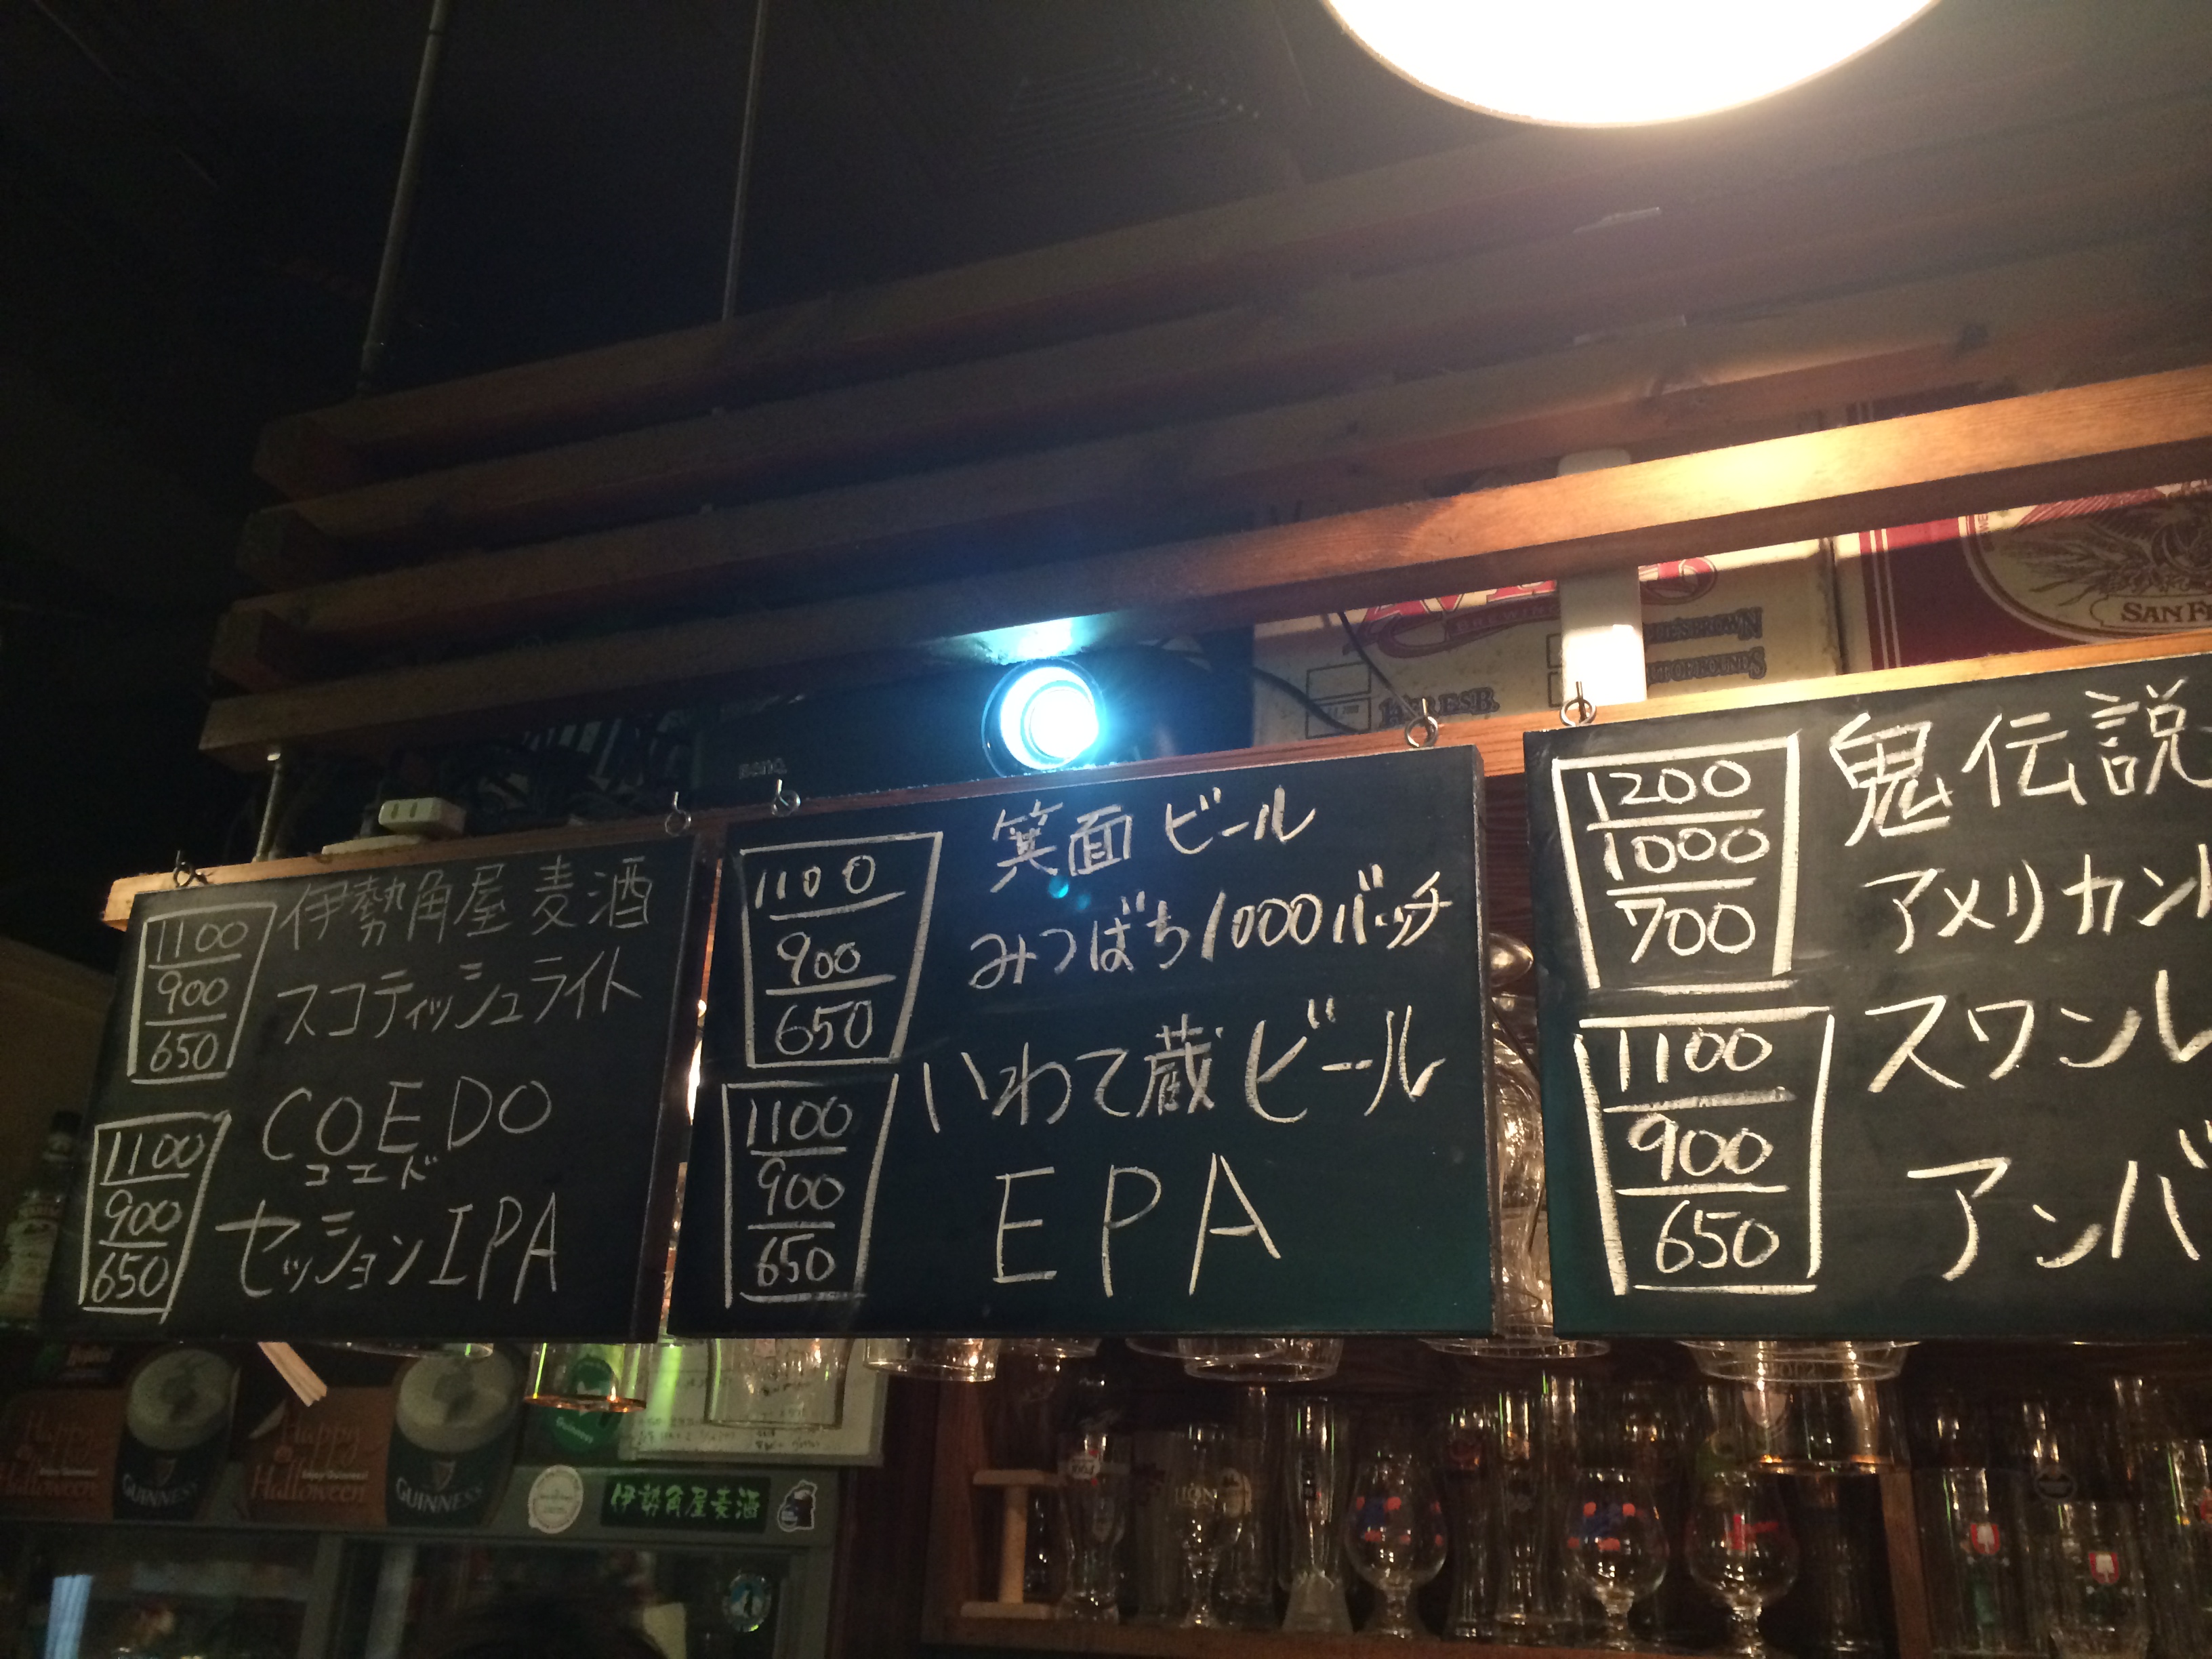 1100
900
650
伊勢角屋麦酒
スコティッシュライト
1100
900
650
COEDO
コエド
セッションIPA
1100
900
650
箕面ビール
みつばち1000バッチ
1100
900
650
いわて蔵ビール
EPA
1200
1000
700
鬼伝説
アメリカン
1100
900
650
スワンレ
アンバ
BenQ
SAN F
Happy
Halloween
GUINNESS
Happy
Halloween
GUINNESS
GUINNESS
伊勢角屋麦酒